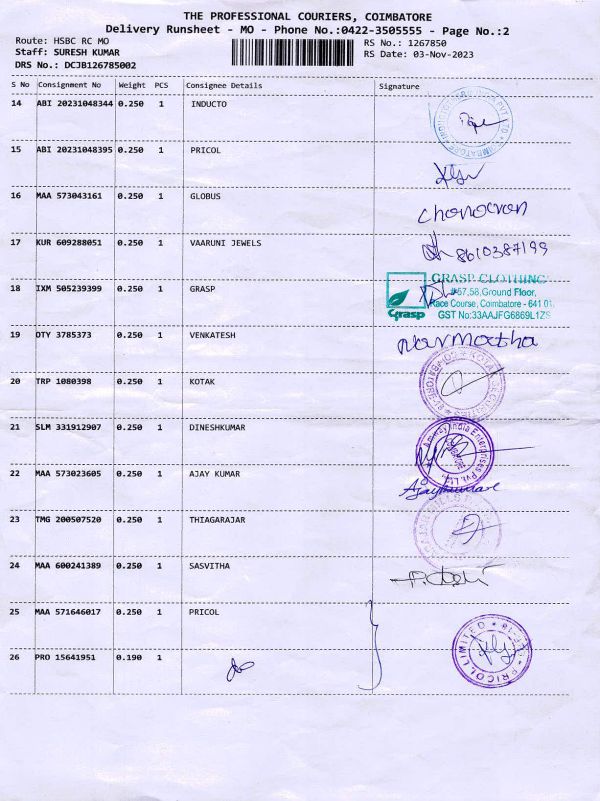 THE PROFESSIONAL COURIERS, COIMBATORE
Delivery Runsheet - MO - Phone No.:0422-3505555 - Page No.:2
Route: HSBC RC MO RS No.: 1267850
Staff: SURESH KUMAR RS Date: 03-Nov-2023
DRS No.: DCJB126785002
S No Consignment No Weight PCS Consignee Details Signature
14 ABI 20231048344 0.250 1 INDUCTO
15 ABI 20231048395 0.250 1 PRICOL
16 MAA 573043161 0.250 1 GLOBUS
17 KUR 609288051 0.250 1 VAARUNI JEWELS 8610387199
18 IXM 505239399 0.250 1 GRASP
Grasp
GRASP CLOTHING
#57,58,Ground Floor,
Race Course, Coimbatore - 641 01
GST No:33AAJFG6869L1ZS
19 OTY 3785373 0.250 1 VENKATESH Narmatha
20 TRP 1080398 0.250 1 KOTAK
21 SLM 331912907 0.250 1 DINESHKUMAR
India Enterprises Pvt. Ltd.
22 MAA 573023605 0.250 1 AJAY KUMAR
23 TMG 200507520 0.250 1 THIAGARAJAR
24 MAA 600241389 0.250 1 SASVITHA
25 MAA 571646017 0.250 1 PRICOL
PRICOL LIMITED
26 PRO 15641951 0.190 1